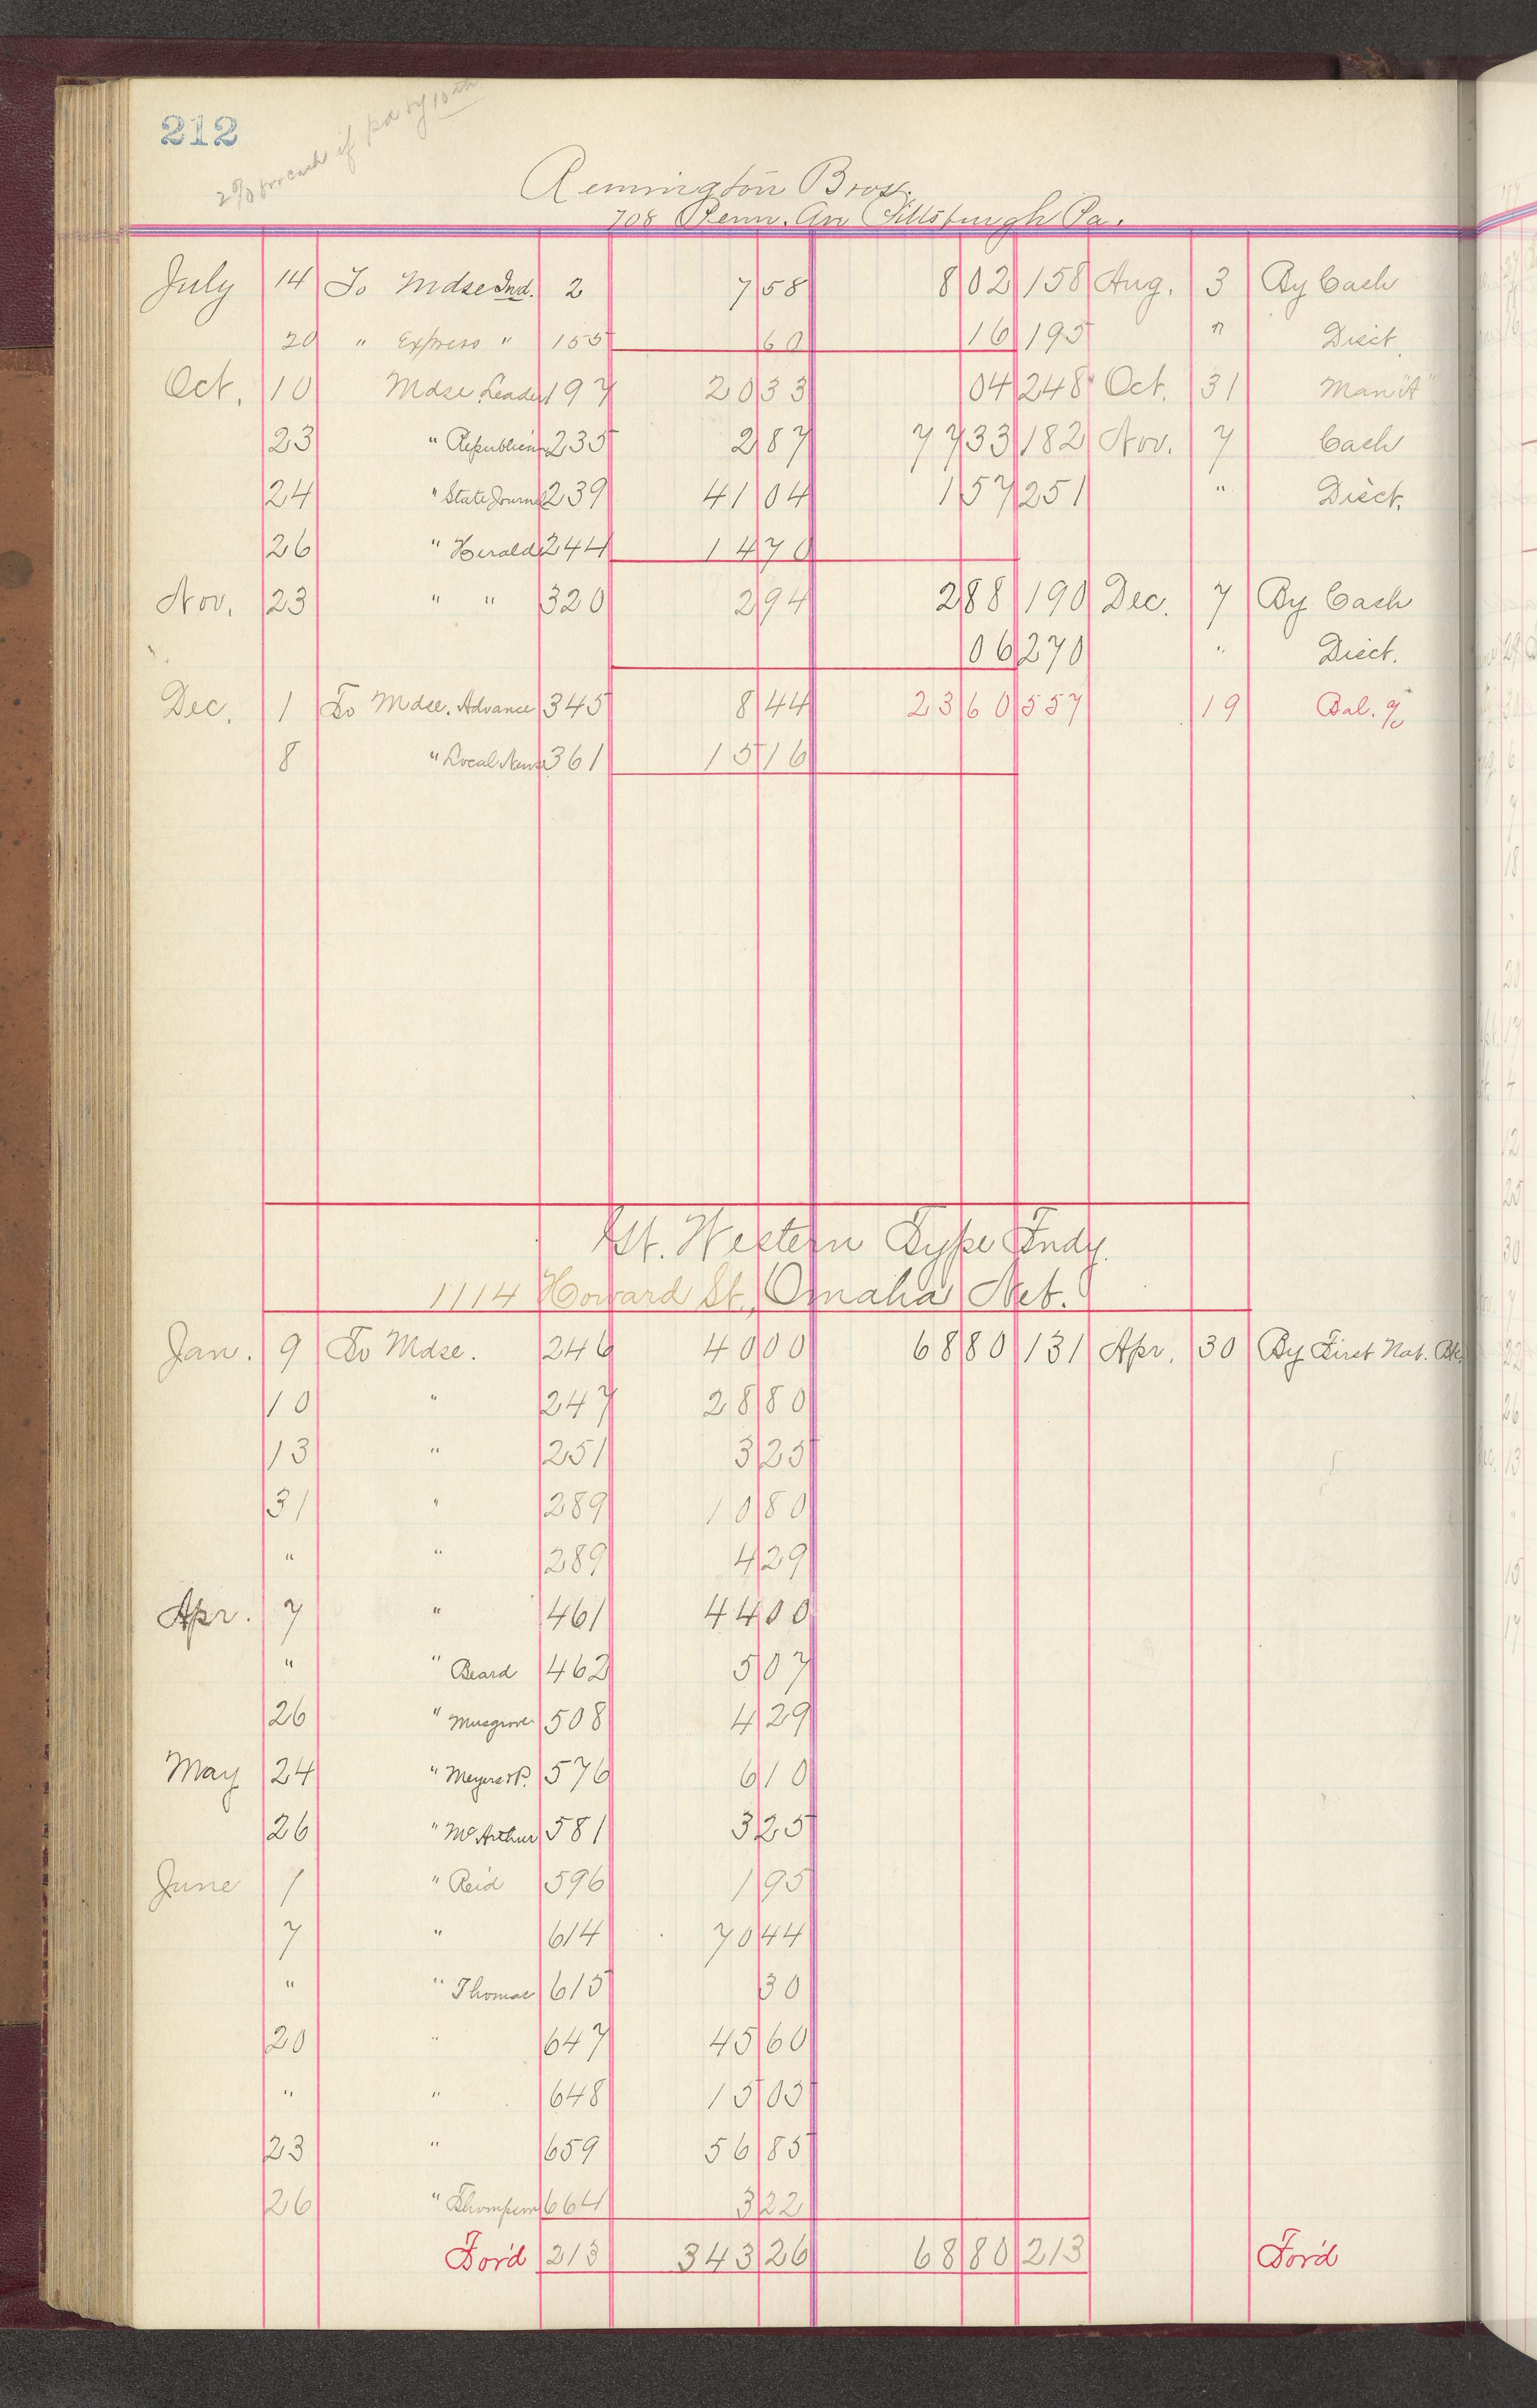 212
2% for cash if pd by 10th
Remington Bros.
708 Penn. Av Pittsburgh Pa.
July 14 To Mdse Ind. 2 7 58 8 02 158 Aug. 3 By Cash
20 " Express " 155 60 16 195 " Disct.
Oct. 10 Mdse Leader 197 20 33 04 248 Oct. 31 Man "A"
23 " Republican 235 2 87 77 33 182 Nov. 7 Cash
24 " State Journal 239 41 04 1 57 251 " Disct.
26 " Herald 244 14 70
Nov. 23 " " 320 2 94 2 88 190 Dec. 7 By Cash
06 270 " Disct.
Dec. 1 To Mdse. Advance 345 8 44 23 60 557 19 Bal. a/c
8 " Local News 361 15 16
Gt. Western Type Fndy.
1114 Howard St., Omaha Neb.
Jan. 9 To Mdse. 246 40 00 68 80 131 Apr. 30 By First Nat. Bk.
10 " 247 28 80
13 " 251 3 25
31 " 289 10 80
" " 289 4 29
Apr. 7 " 461 44 00
" " Beard 462 5 07
26 " Musgrove 508 4 29
May 24 " Meyers & P. 576 6 10
26 " McArthur 581 3 25
June 1 " Reid 596 1 95
7 " 614 70 44
" " Thomas 615 30
20 " 647 45 60
" " 648 15 05
23 " 659 56 85
26 " Thompson 664 3 22
For'd 213 343 26 68 80 213 For'd